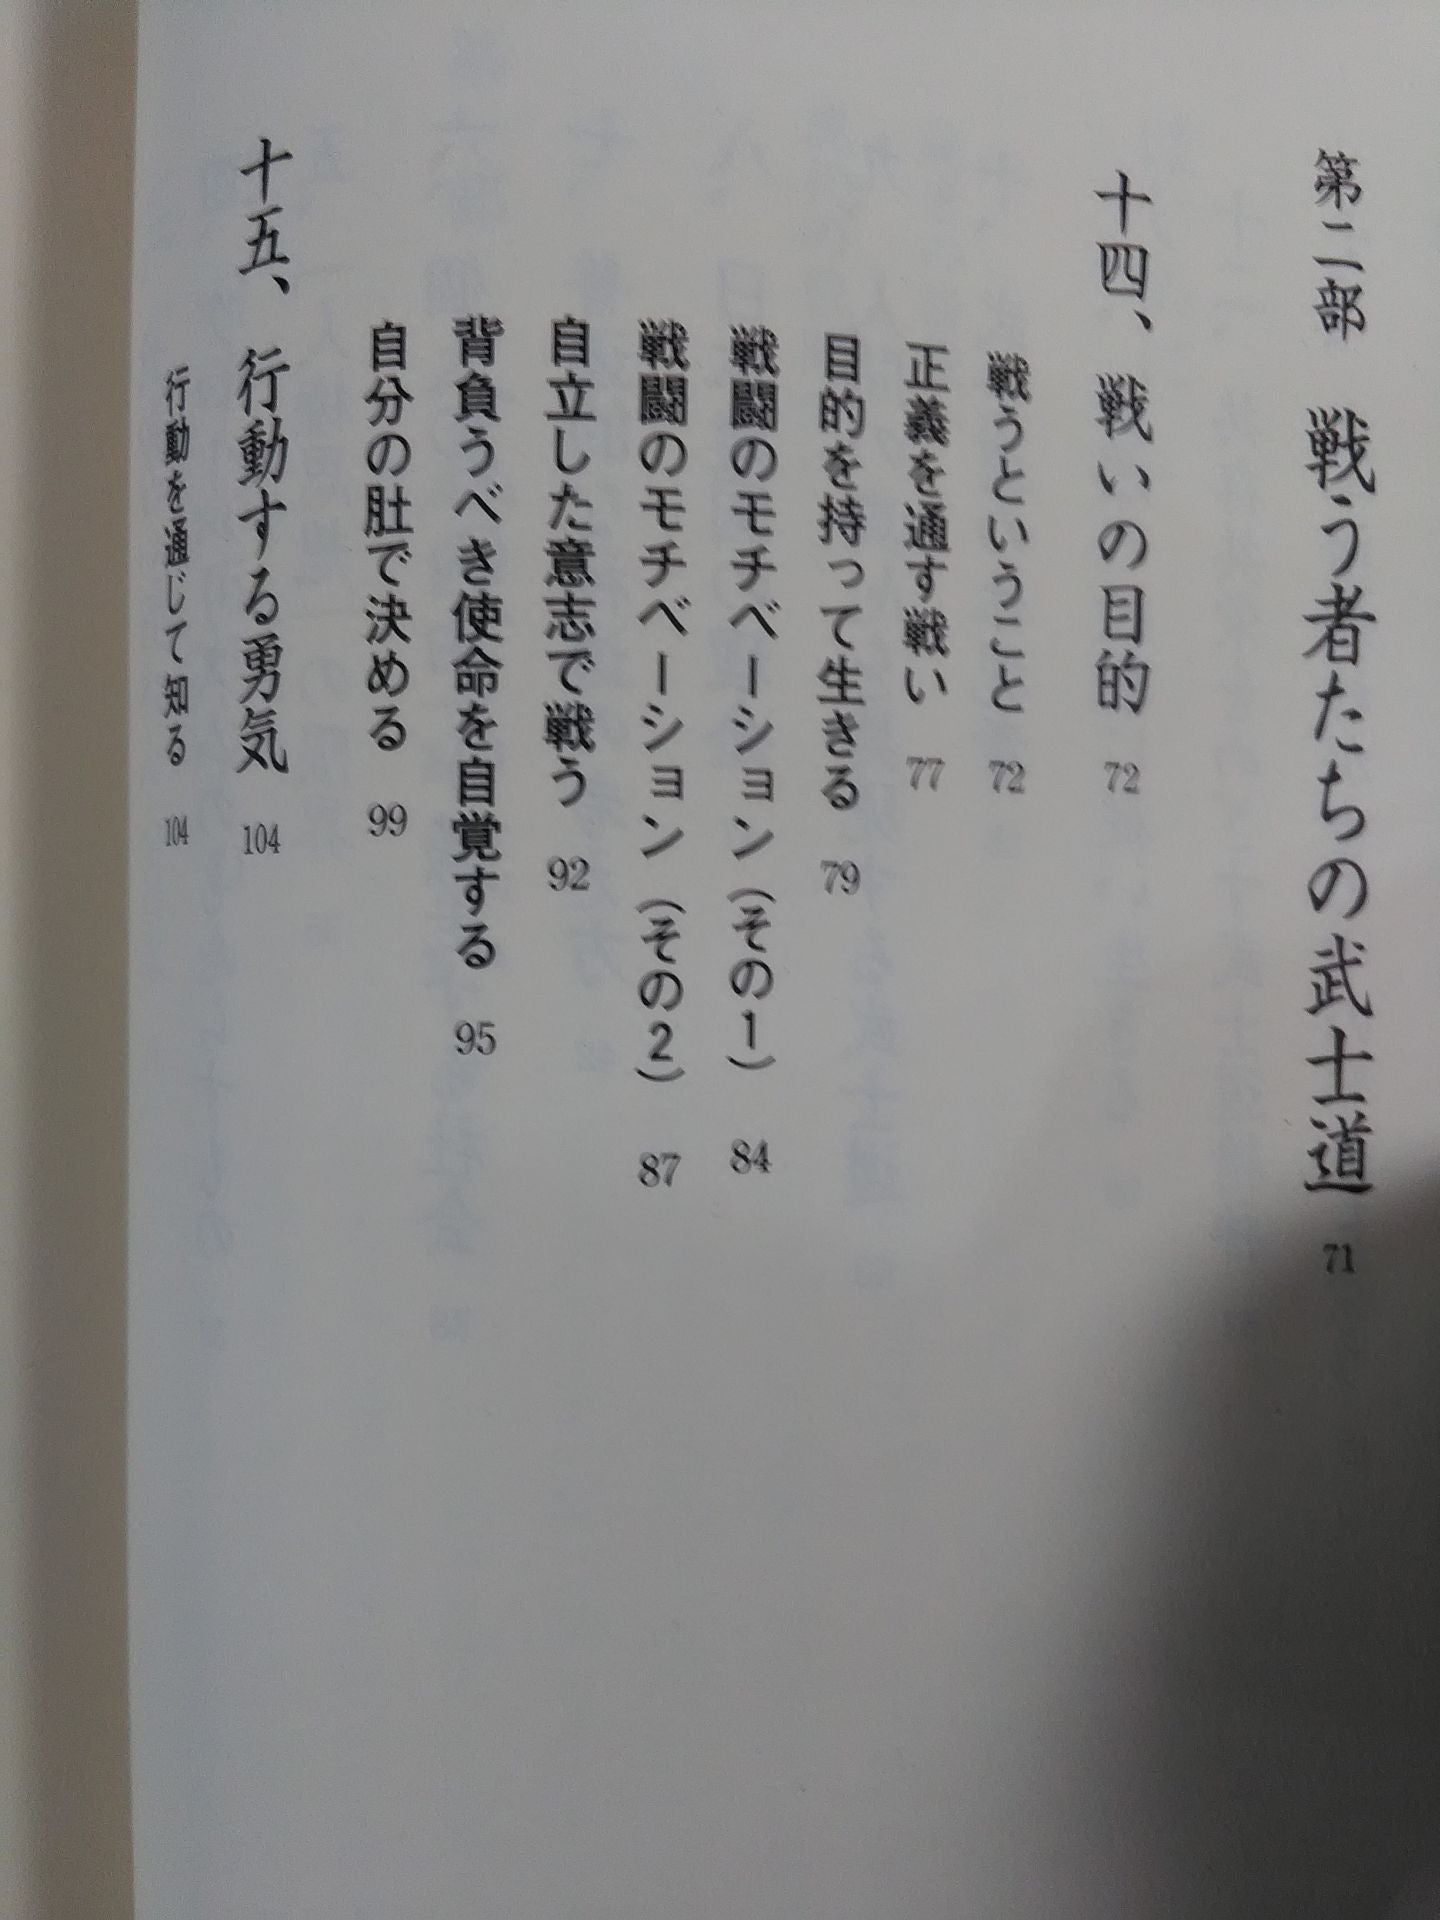 第二部　戦う者たちの武士道　71
十四、戦いの目的　72
戦うということ　72
正義を通す戦い　77
目的を持って生きる　79
戦闘のモチベーション（その1）　84
戦闘のモチベーション（その2）　87
自立した意志で戦う　92
背負うべき使命を自覚する　95
自分の肚で決める　99
十五、行動する勇気　104
行動を通じて知る　104